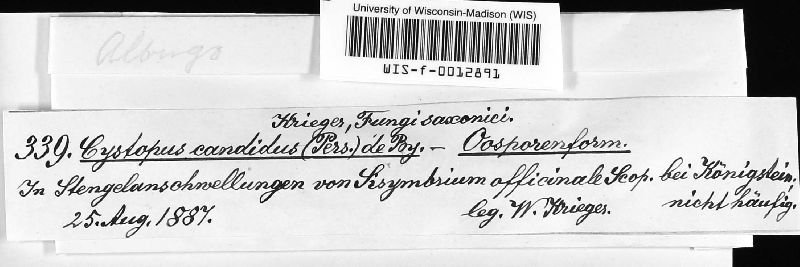 University of Wisconsin-Madison (WIS)
WIS-f-0012891
Albugo
Krieger, Fungi saxonici.
339. Cystopus candidus (Pers.) de By. – Oosporenform.
In Stengelanschwellungen von Sisymbrium officinale Scop. bei Königstein,
25. Aug. 1887. leg. W. Krieger. nicht häufig.